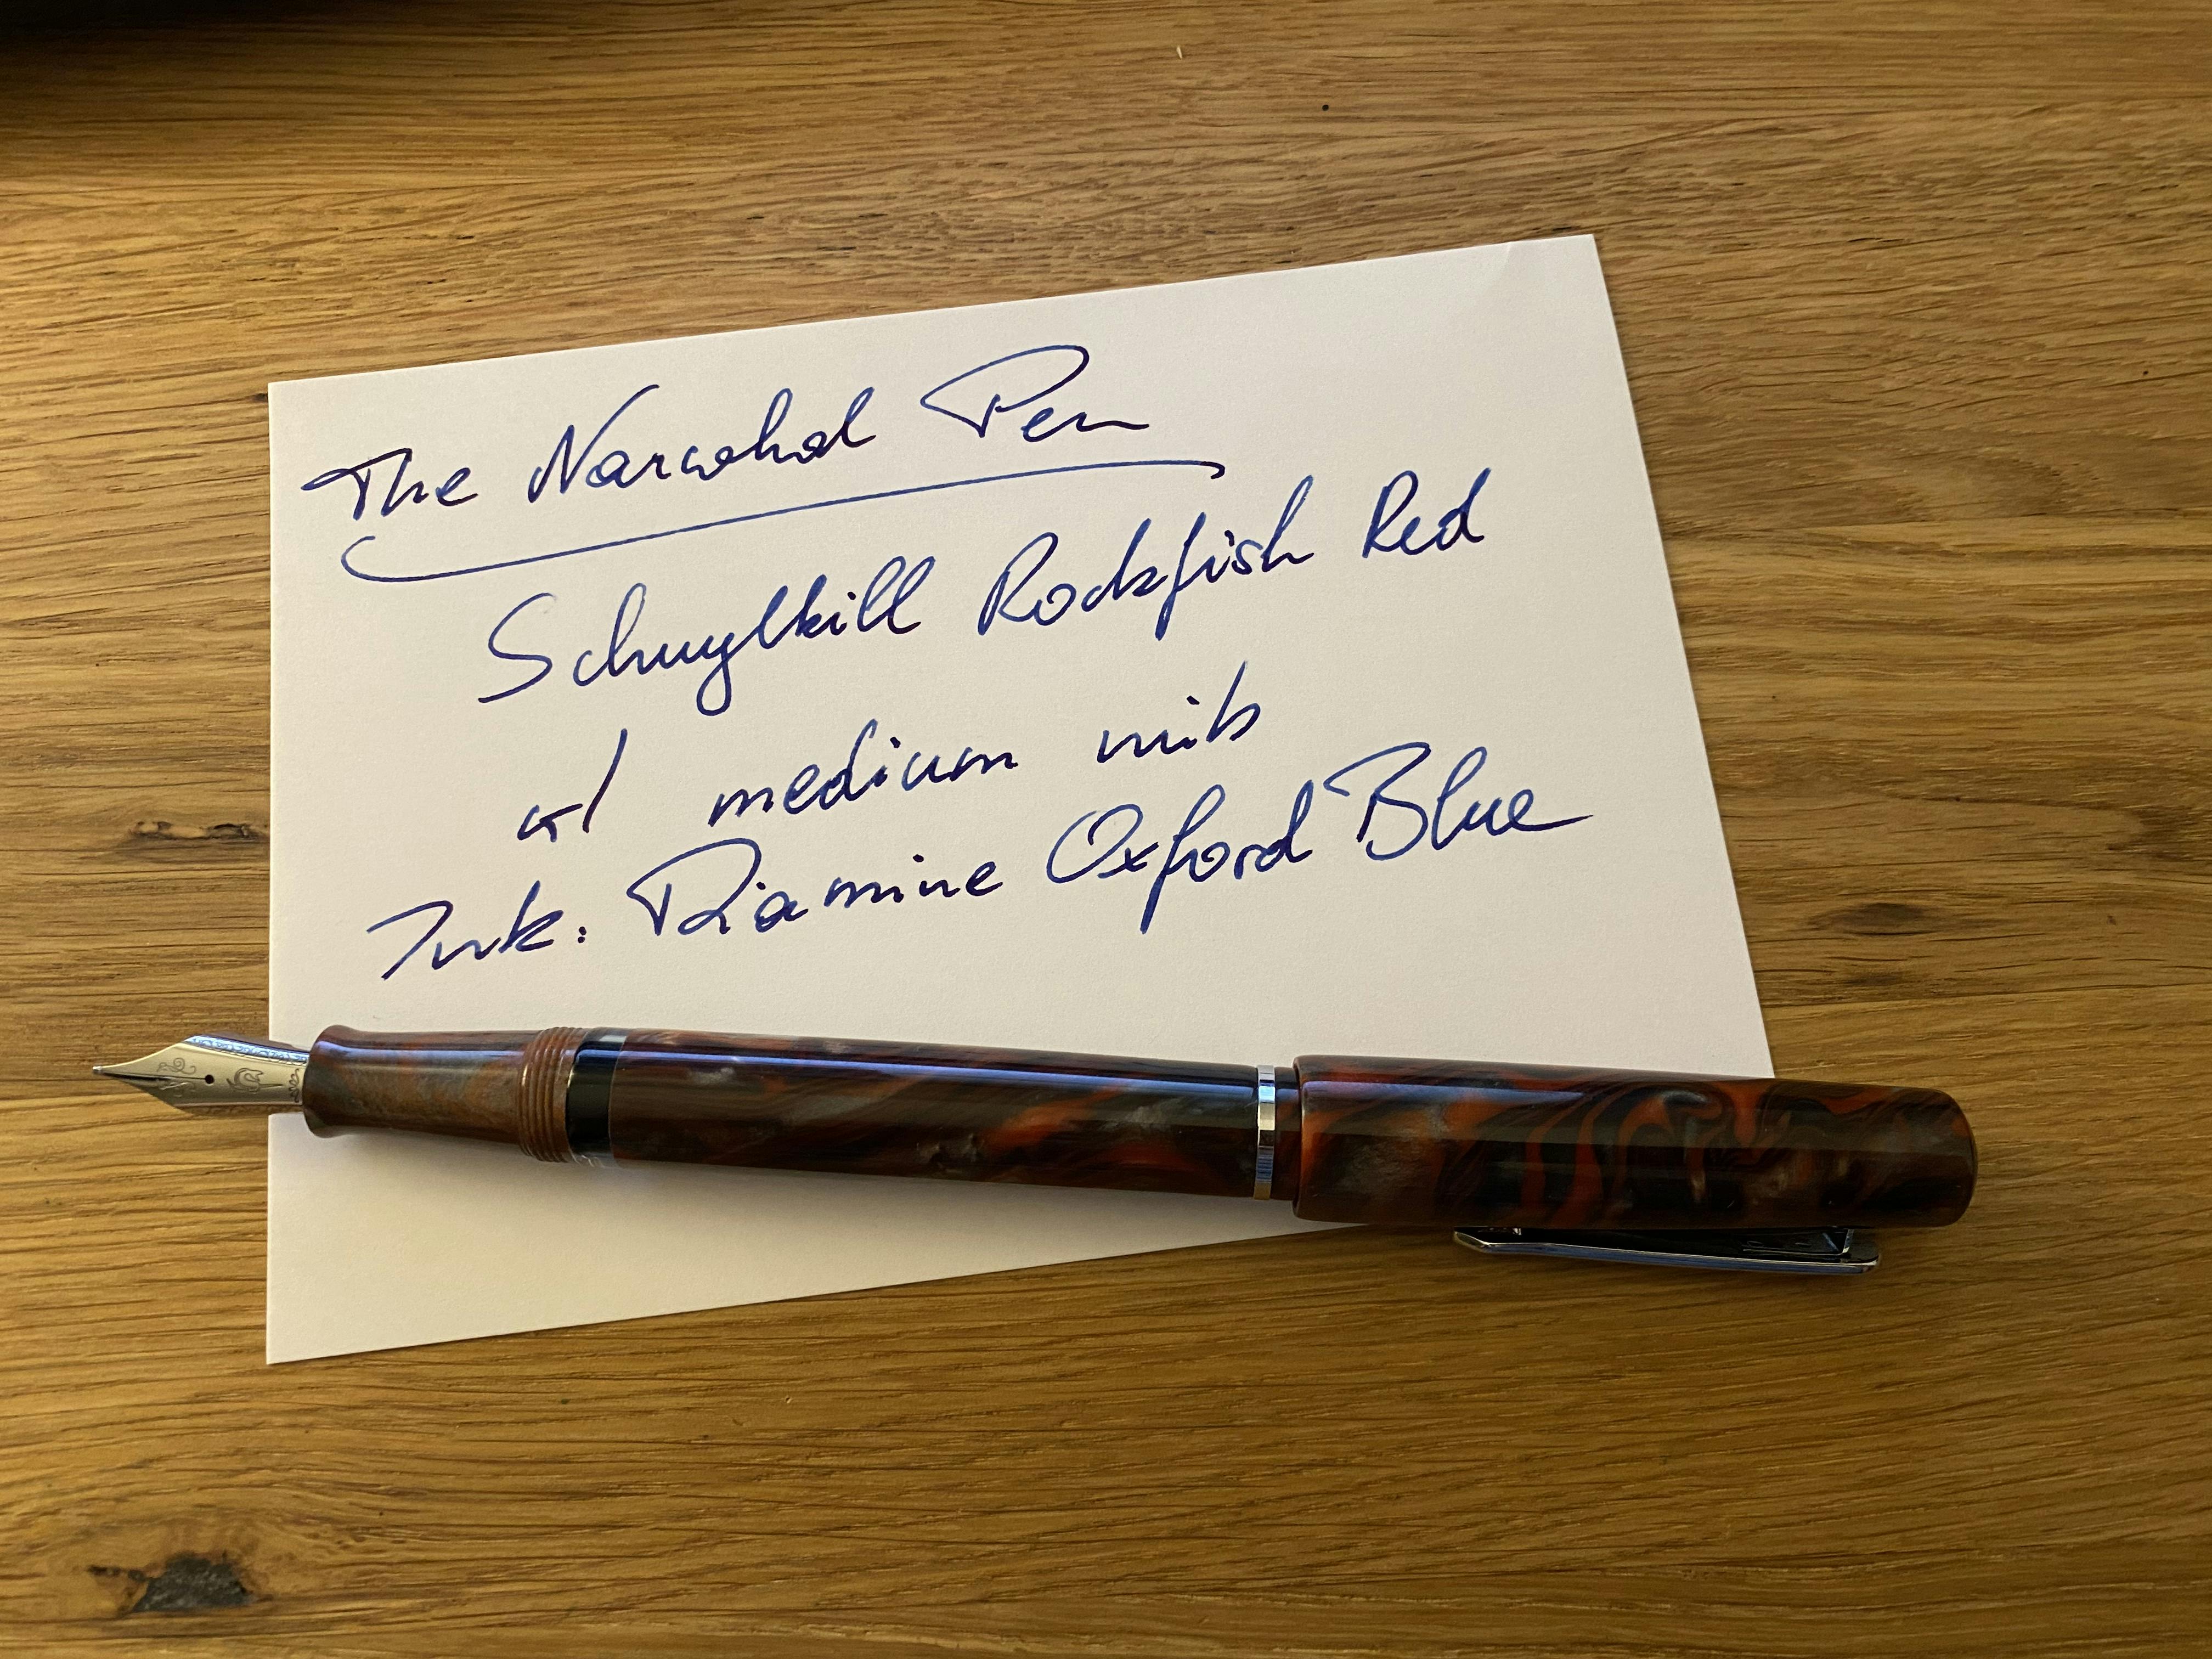 The Narwhal Pen
Schuylkill Rockfish Red
w/ medium nib
Ink: Diamine Oxford Blue